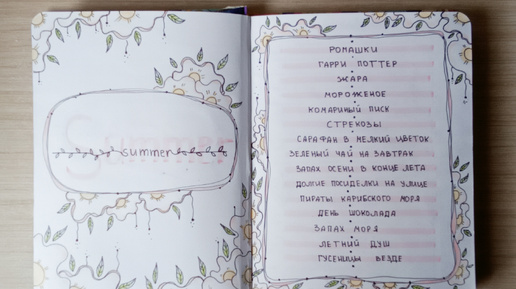 Summer
summer
РОМАШКИ
ГАРРИ ПОТТЕР
ЖАРА
МОРОЖЕНОЕ
КОМАРИНЫЙ ПИСК
СТРЕКОЗЫ
САРАФАН В МЕЛКИЙ ЦВЕТОК
ЗЕЛЕНЫЙ ЧАЙ НА ЗАВТРАК
ЗАПАХ ОСЕНИ В КОНЦЕ ЛЕТА
ДОЛГИЕ ПОСИДЕЛКИ НА УЛИЦЕ
ПИРАТЫ КАРИБСКОГО МОРЯ
ДЕНЬ ШОКОЛАДА
ЗАПАХ МОРЯ
ЛЕТНИЙ ДУШ
ГУСЕНИЦЫ ВЕЗДЕ